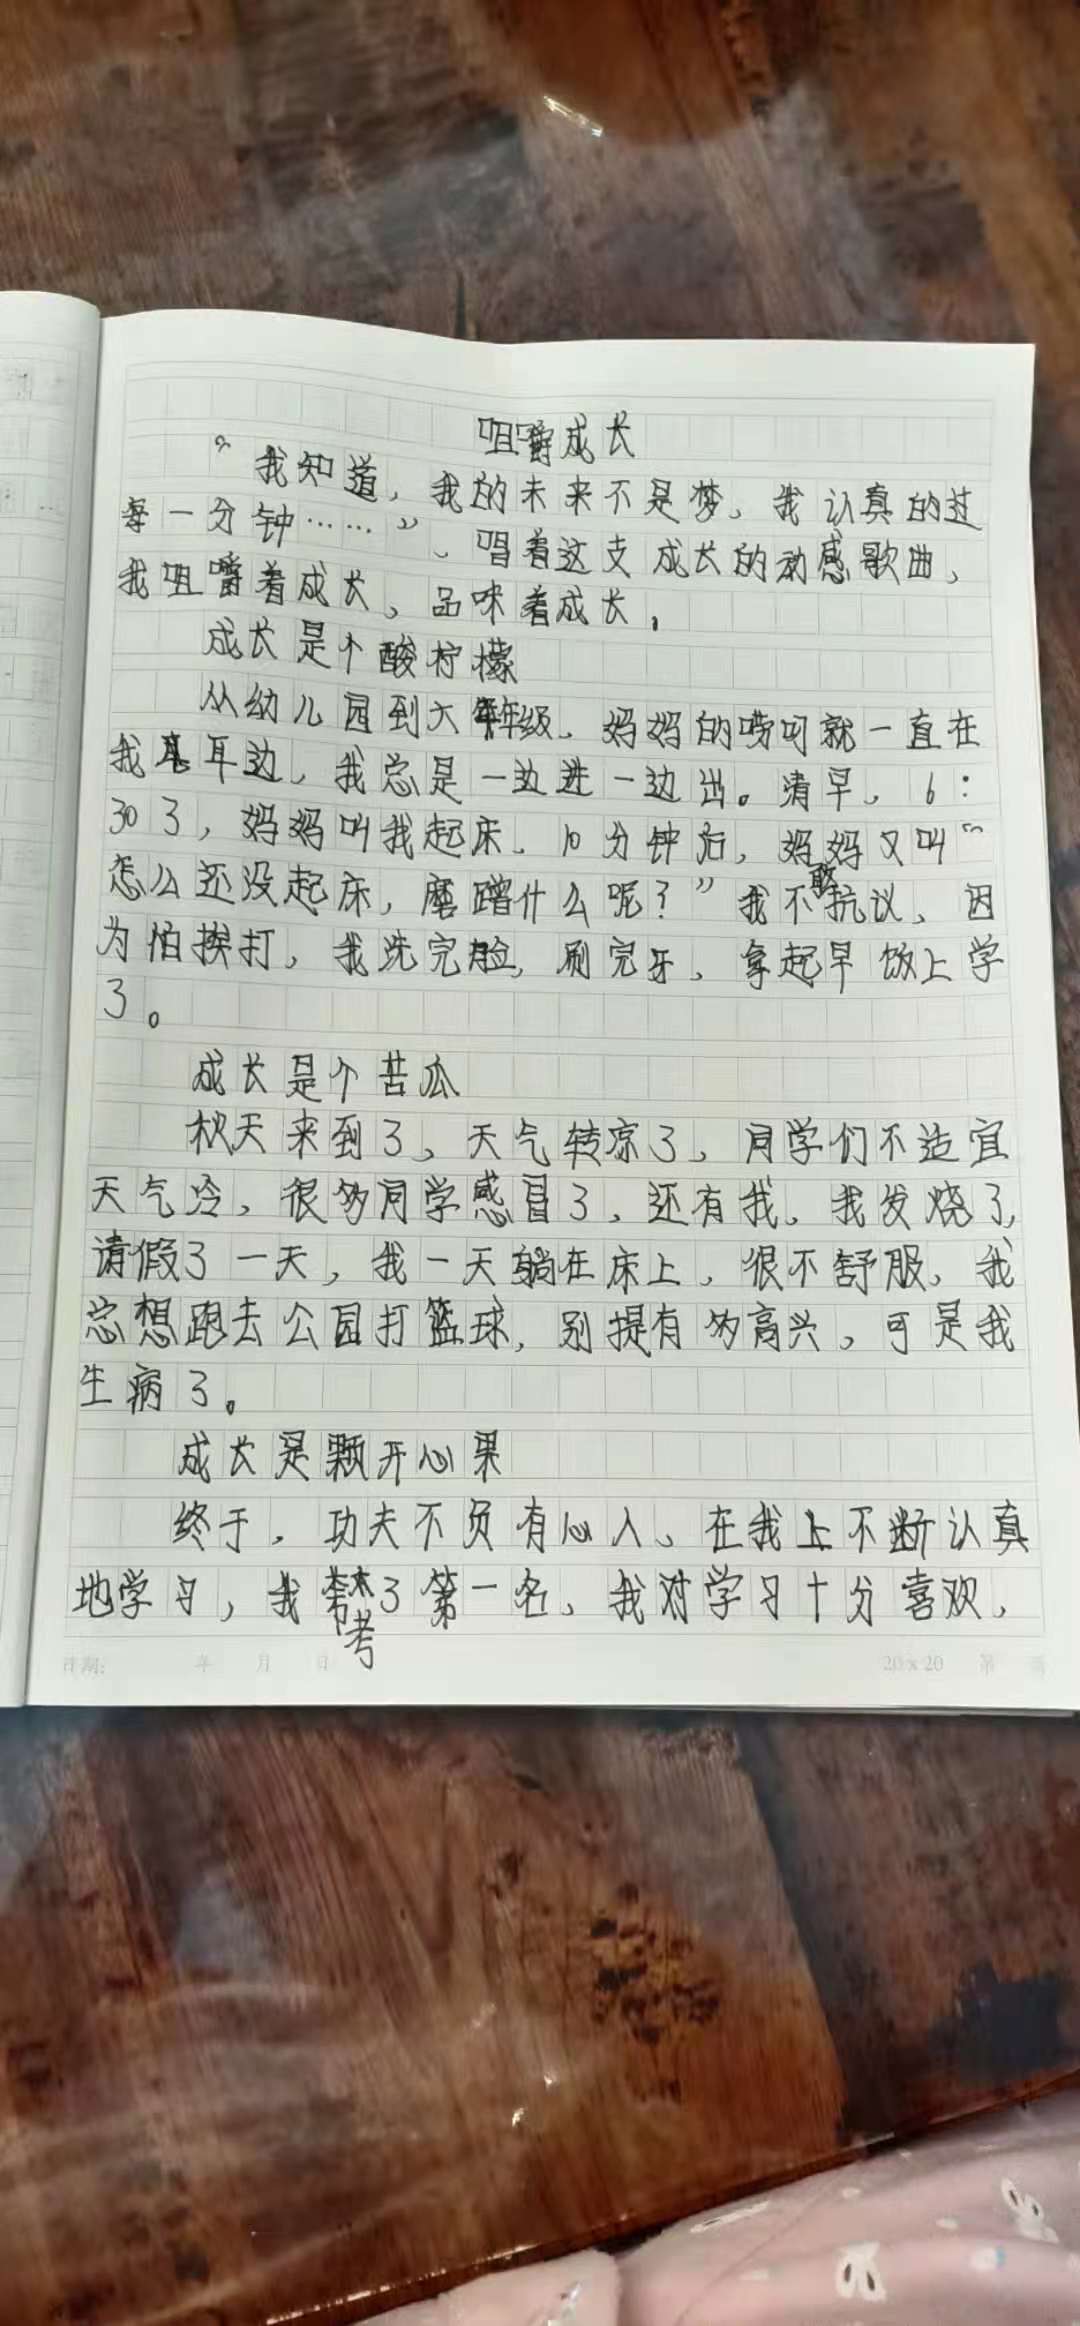 咀嚼成长
“我知道，我的未来不是梦，我认真的过
每一分钟……”，唱着这支成长的动感歌曲，
我咀嚼着成长，品味着成长，
成长是个酸柠檬
从幼儿园到六年级，妈妈的唠叨就一直在
我耳边，我总是一边进一边出。清早，6：
30了，妈妈叫我起床，10分钟后，妈妈又叫“
怎么还没起床，磨蹭什么呢？”我不敢抗议，因
为怕挨打，我洗完脸，刷完牙，拿起早饭上学
了。
成长是个苦瓜
秋天来到了，天气转凉了，同学们不适宜
天气冷，很多同学感冒了，还有我，我发烧了，
请假了一天，我一天躺在床上，很不舒服，我
总想跑去公园打篮球，别提有多高兴，可是我
生病了。
成长是颗开心果
终于，功夫不负有心人，在我上不断认真
地学习，我考了第一名，我对学习十分喜欢，
日期： 年 月 日 20×20 第 页